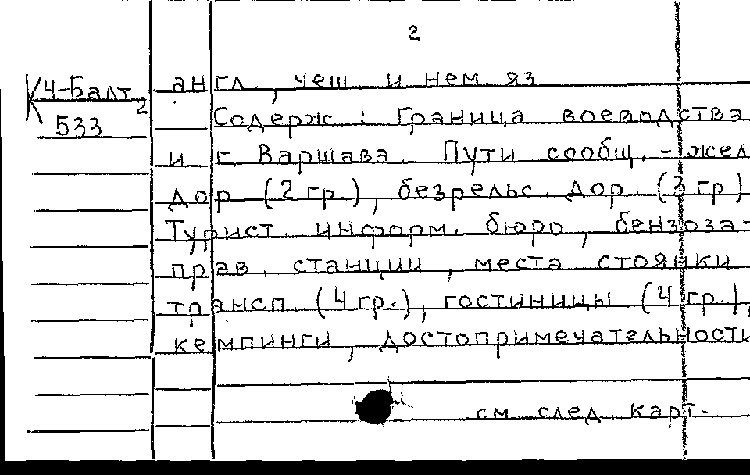 2
К4-Балт2
533
англ, чеш и нем яз
Содерж: Граница воеводства
и г. Варшава. Пути сообщ. - жел
дор (2 гр.), безрельс. дор. (3 гр)
Турист. информ. бюро, бензоза-
прав. станции, места стоянки
трансп. (4 гр.), гостиницы (4 гр.),
кемпинги, достопримечательности
см след карт.